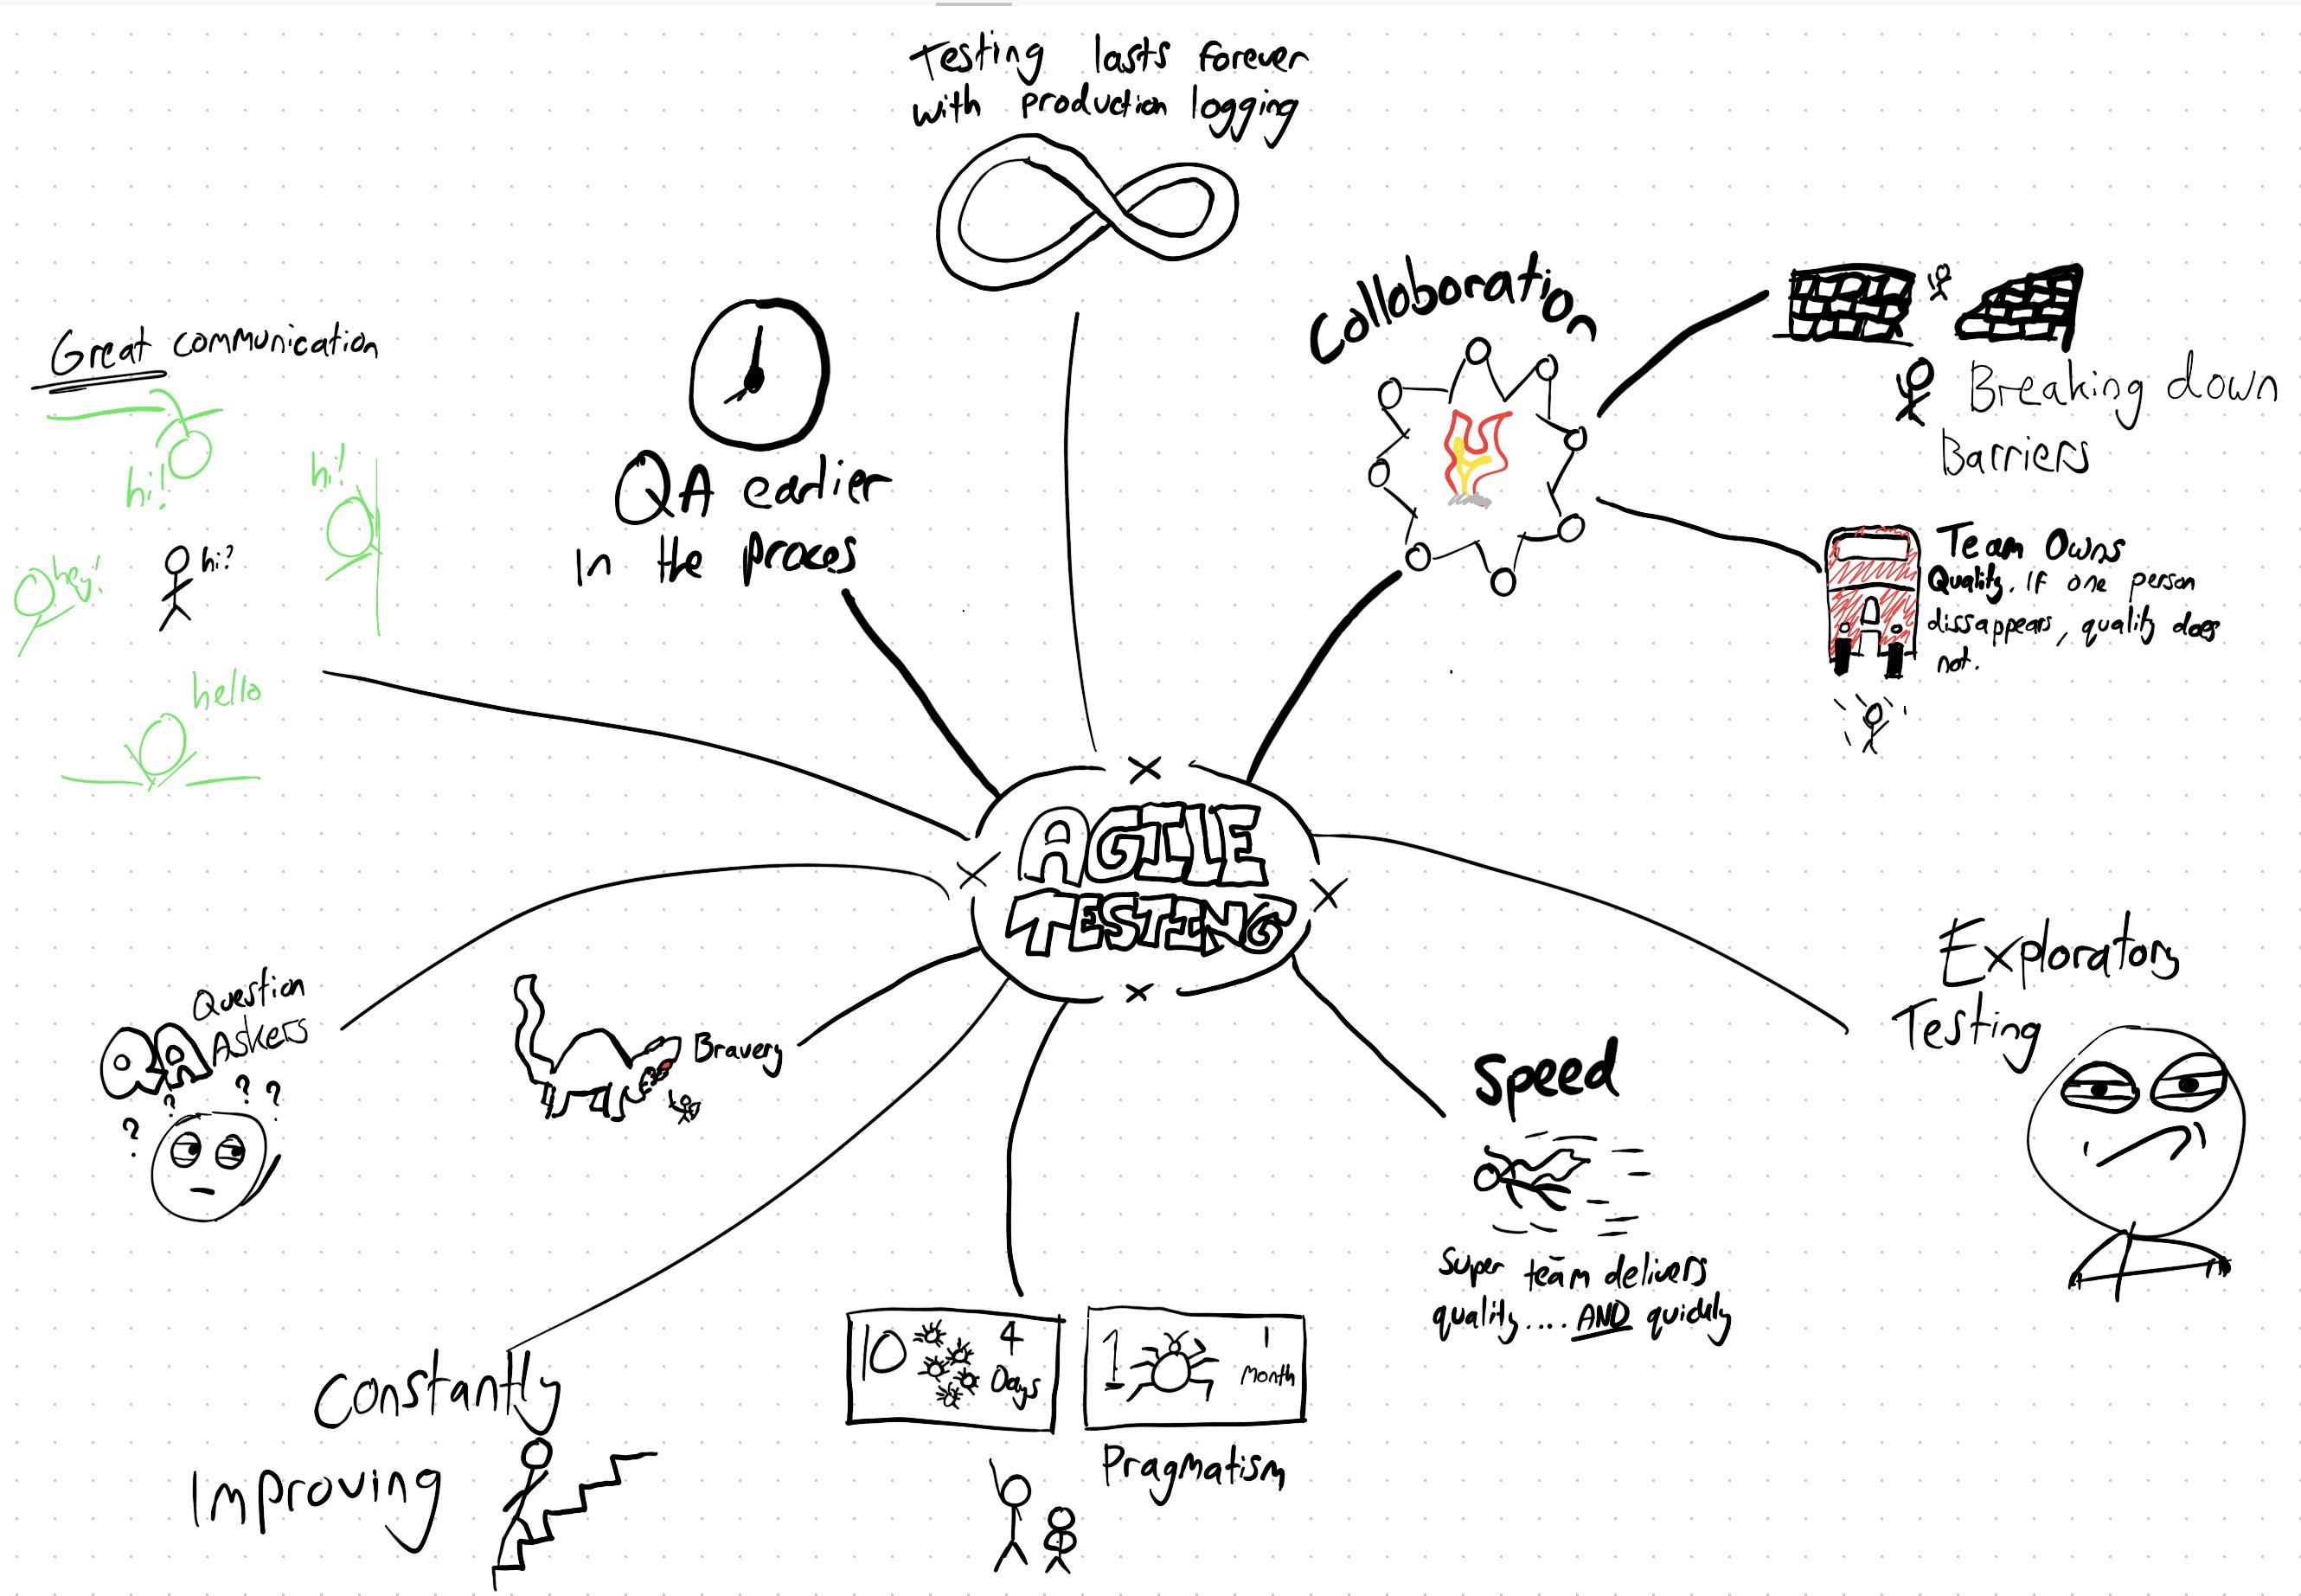 Testing lasts forever
with production logging
Collaboration
Breaking down
Barriers
Team Owns
Quality. If one person
dissappears, quality does
not.
Great communication
hi!
hi!
hey!
hi?
hello
QA earlier
In the proces
AGILE
TESTING
Exploratory
Testing
Speed
Super team delivers
quality.... AND quickly
Question
QA Askers
? ? ? ?
Bravery
10 4
Days
1 1
Month
Pragmatism
Constantly
Improving